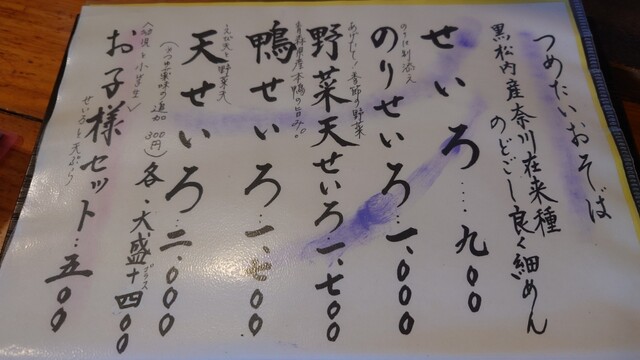 つめたいおそば
黒松内産奈川在来種
のどごし良く細めん
せいろ‥‥九〇〇
のりせいろ‥一、〇〇〇
のりは別添え
野菜天せいろ一、七〇〇
あげだし・季節の野菜
鴨せいろ‥一、七〇〇
青森県産本鴨の旨み。
天せいろ‥二、〇〇〇
えび天と野菜天
(さつき薬味の追加 300円)
各、大盛+四〇〇
プラス
お子様セット‥五〇〇
(幼児と小学生)
せいろと天ぷら